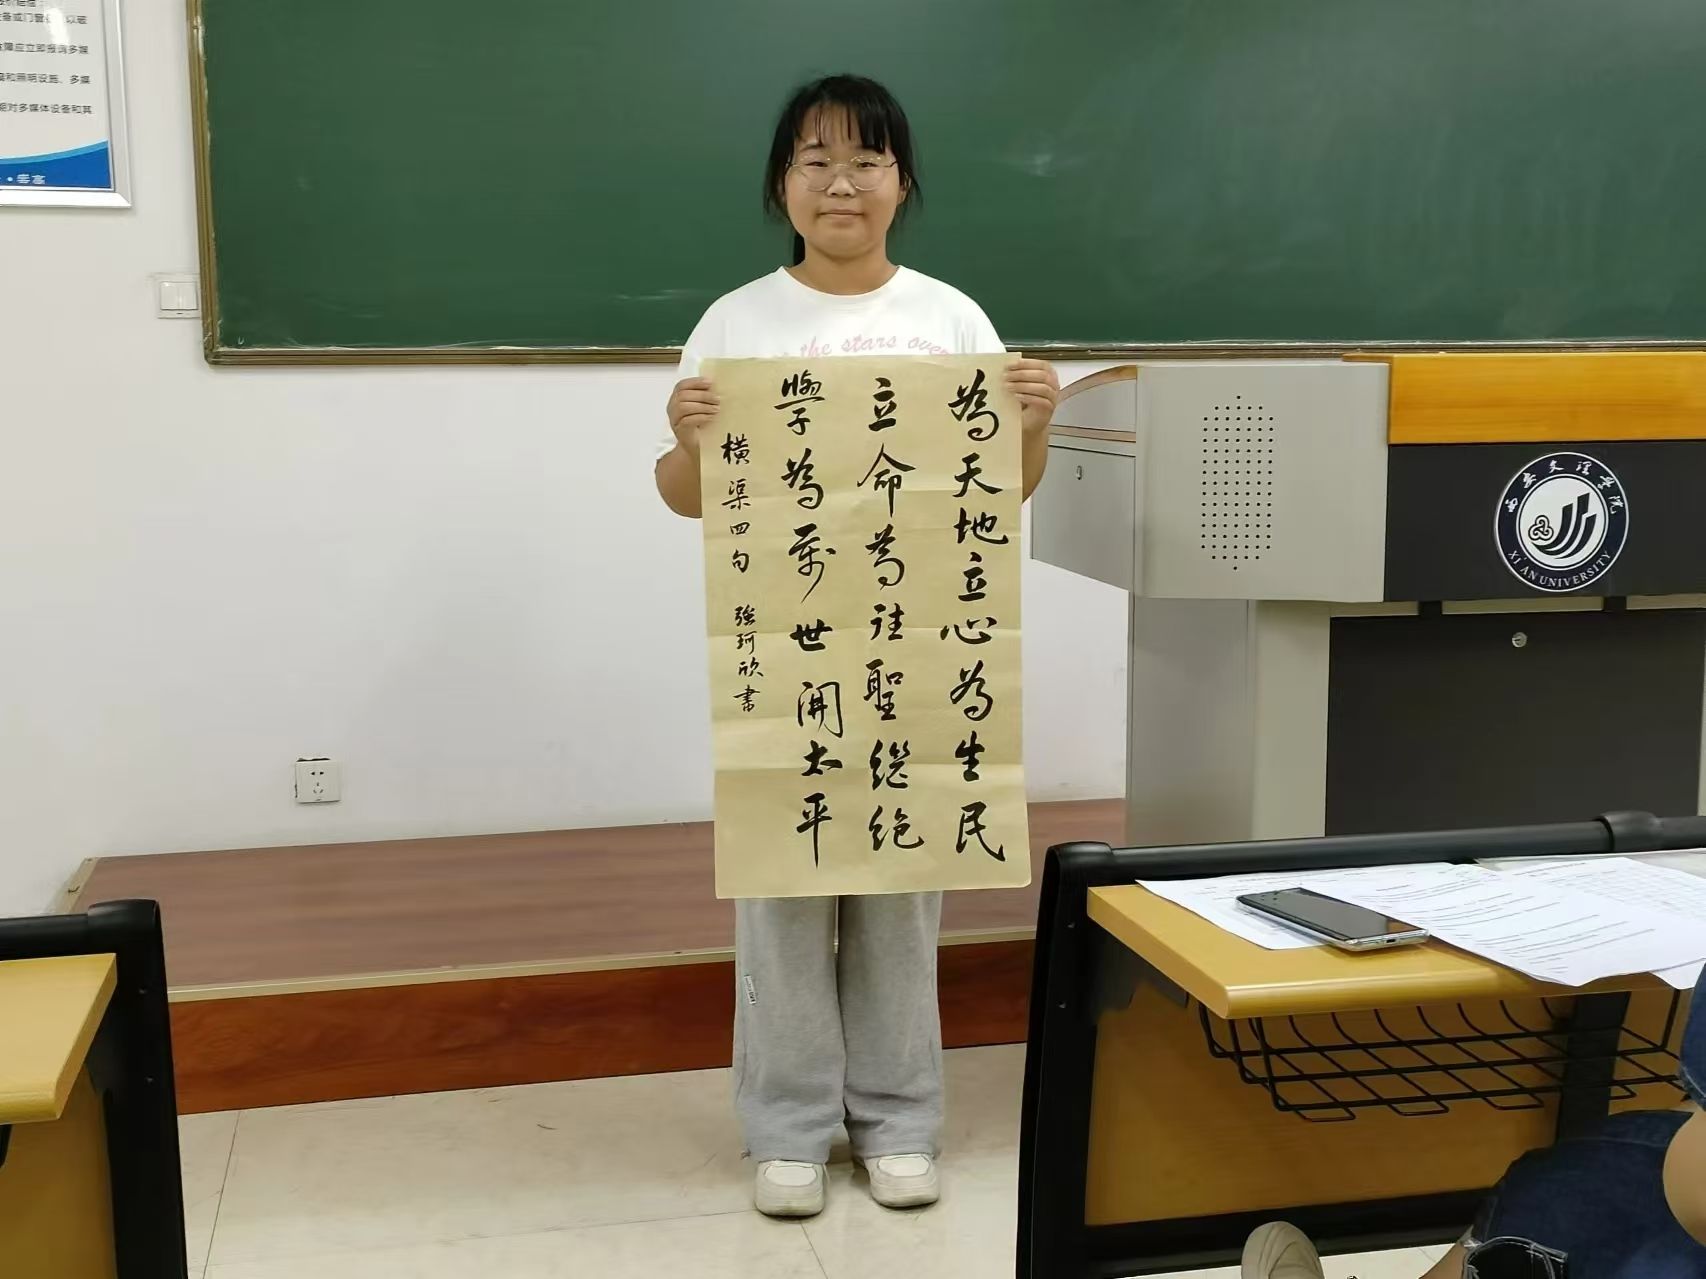 为天地立心為生民
立命為往聖继绝
學為万世開太平
橫渠四句 強珂欣書
the stars over
西安文理学院
XI'AN UNIVERSITY
备或门窗
以破
故障应立即报询多媒
和照明设施、多媒
期对多媒体设备和其